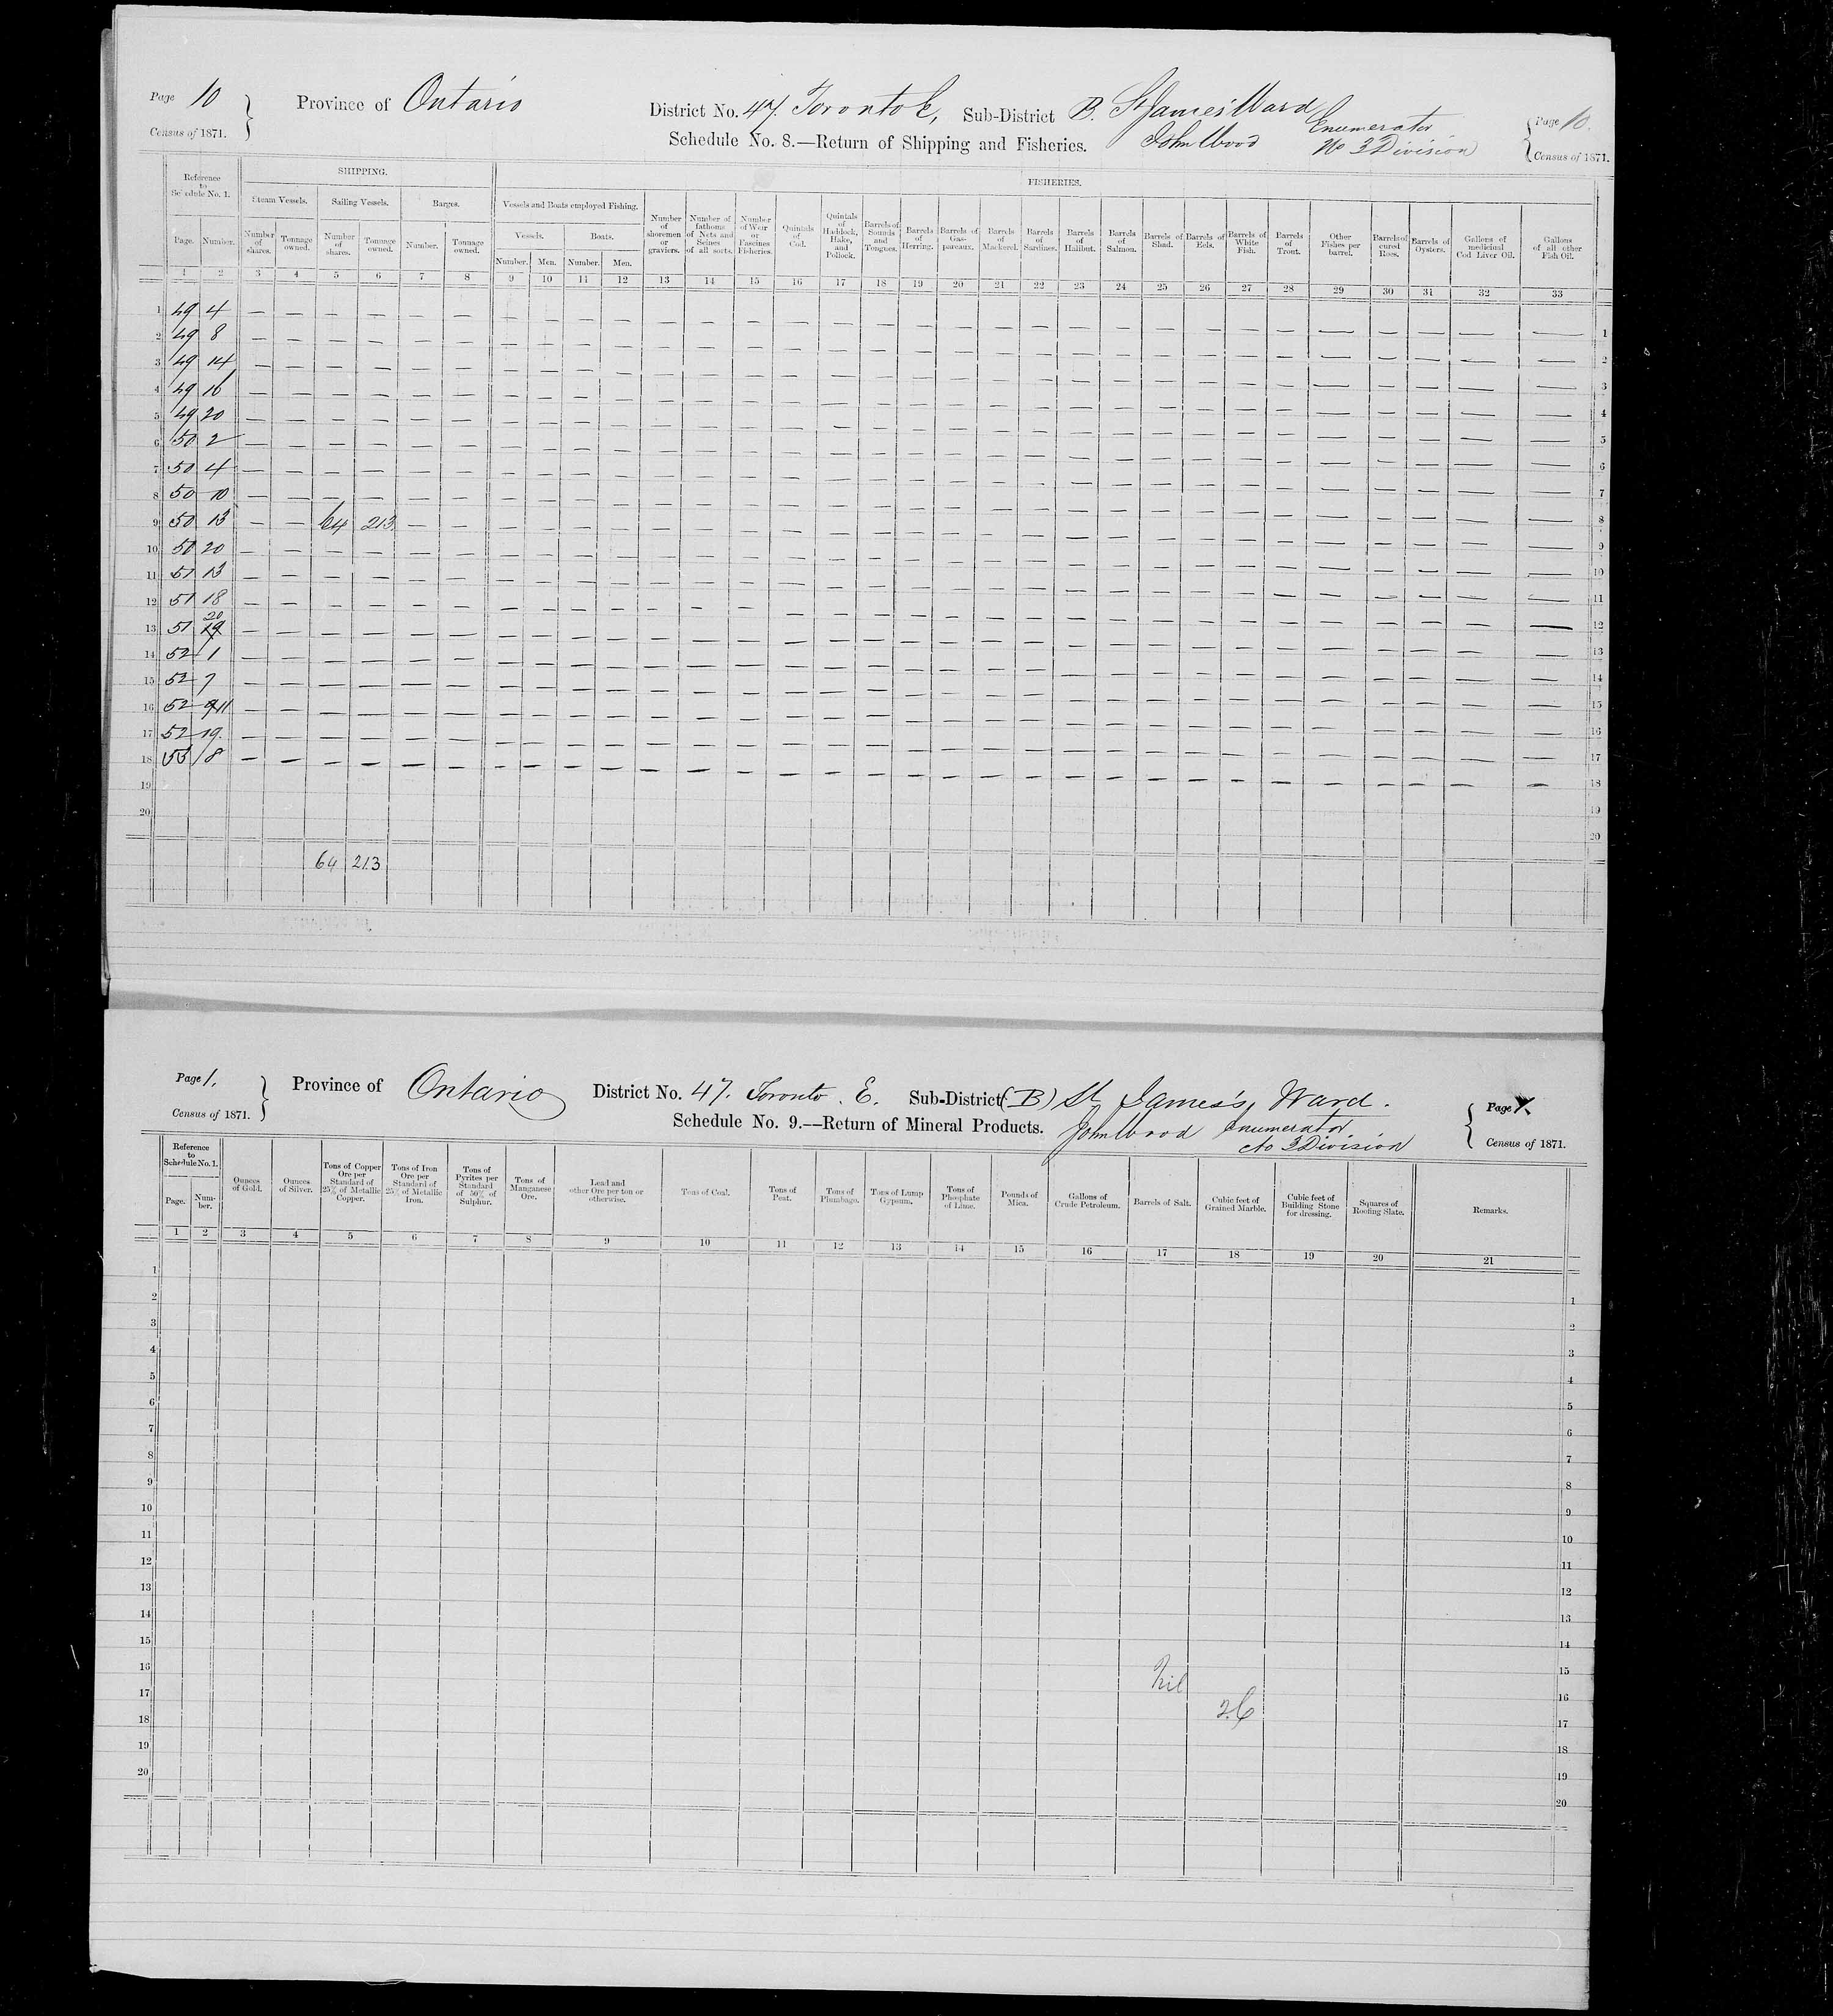 Page 10
Census of 1871.
Province of Ontario
District No. 47. Toronto E, Sub-District B. St James' Ward
Schedule No. 8.—Return of Shipping and Fisheries. John Wood Enumerator
No 3 Division
Page 10.
Census of 1871.
Reference to Schedule No. 1.
SHIPPING.
FISHERIES.
Steam Vessels. Sailing Vessels. Barges. Vessels and Boats employed Fishing.
Vessels. Boats.
Page. Number. Number of shares. Tonnage owned. Number of shares. Tonnage owned. Number. Tonnage owned. Number. Men. Number. Men. Number of shoremen or graviers. Number of fathoms of Nets and Seines of all sorts. Number of Weir or Fascines Fisheries. Quintals of Cod. Quintals of Haddock, Hake, and Pollock. Barrels of Sounds and Tongues. Barrels of Herring. Barrels of Gaspareaux. Barrels of Mackerel. Barrels of Sardines. Barrels of Halibut. Barrels of Salmon. Barrels of Shad. Barrels of Eels. Barrels of White Fish. Barrels of Trout. Other Fishes per barrel. Barrels of cured Roes. Barrels of Oysters. Gallons of medicinal Cod Liver Oil. Gallons of all other Fish Oil.
1 2 3 4 5 6 7 8 9 10 11 12 13 14 15 16 17 18 19 20 21 22 23 24 25 26 27 28 29 30 31 32 33
1 49 4 — — — — — — — — — — — — — — — — — — — — — — — — — — — — — — — 1
2 49 8 — — — — — — — — — — — — — — — — — — — — — — — — — — — — — — — 2
3 49 14 — — — — — — — — — — — — — — — — — — — — — — — — — — — — — — — 3
4 49 16 — — — — — — — — — — — — — — — — — — — — — — — — — — — — — — — 4
5 49 20 — — — — — — — — — — — — — — — — — — — — — — — — — — — — — — — 5
6 50 2 — — — — — — — — — — — — — — — — — — — — — — — — — — — — — — — 6
7 50 4 — — — — — — — — — — — — — — — — — — — — — — — — — — — — — — — 7
8 50 10 — — — — — — — — — — — — — — — — — — — — — — — — — — — — — — — 8
9 50 13 — — 64 213 — — — — — — — — — — — — — — — — — — — — — — — — — — — 9
10 50 20 — — — — — — — — — — — — — — — — — — — — — — — — — — — — — — — 10
11 51 13 — — — — — — — — — — — — — — — — — — — — — — — — — — — — — — — 11
12 51 18 — — — — — — — — — — — — — — — — — — — — — — — — — — — — — — — 12
20
13 51 19 — — — — — — — — — — — — — — — — — — — — — — — — — — — — — — — 13
14 52 1 — — — — — — — — — — — — — — — — — — — — — — — — — — — — — — — 14
15 52 7 — — — — — — — — — — — — — — — — — — — — — — — — — — — — — — — 15
16 52 11 — — — — — — — — — — — — — — — — — — — — — — — — — — — — — — — 16
17 52 19. — — — — — — — — — — — — — — — — — — — — — — — — — — — — — — — 17
18 53 8 — — — — — — — — — — — — — — — — — — — — — — — — — — — — — — — 18
19 19
20 20
64 213
Page 1.
Census of 1871.
Province of Ontario
District No. 47. Toronto. E. Sub-District (B) St James's Ward.
Schedule No. 9.—Return of Mineral Products. John Wood Enumerator
No 3 Division
Page 1.
Census of 1871.
Reference to Schedule No. 1.
Page. Number. Ounces of Gold. Ounces of Silver. Tons of Copper Ore per Standard of 25% of Metallic Copper. Tons of Iron Ore per Standard of 25% of Metallic Iron. Tons of Pyrites per Standard of 50% of Sulphur. Tons of Manganese Ore. Lead and other Ore per ton or otherwise. Tons of Coal. Tons of Peat. Tons of Plumbago. Tons of Lump Gypsum. Tons of Phosphate of Lime. Pounds of Mica. Gallons of Crude Petroleum. Barrels of Salt. Cubic feet of Grained Marble. Cubic feet of Building Stone for dressing. Squares of Roofing Slate. Remarks.
1 2 3 4 5 6 7 8 9 10 11 12 13 14 15 16 17 18 19 20 21
1 1
2 2
3 3
4 4
5 5
6 6
7 7
8 8
9 9
10 10
11 11
12 12
13 13
14 14
15 15
16 Nil 16
17 17
18 18
19 19
20 20